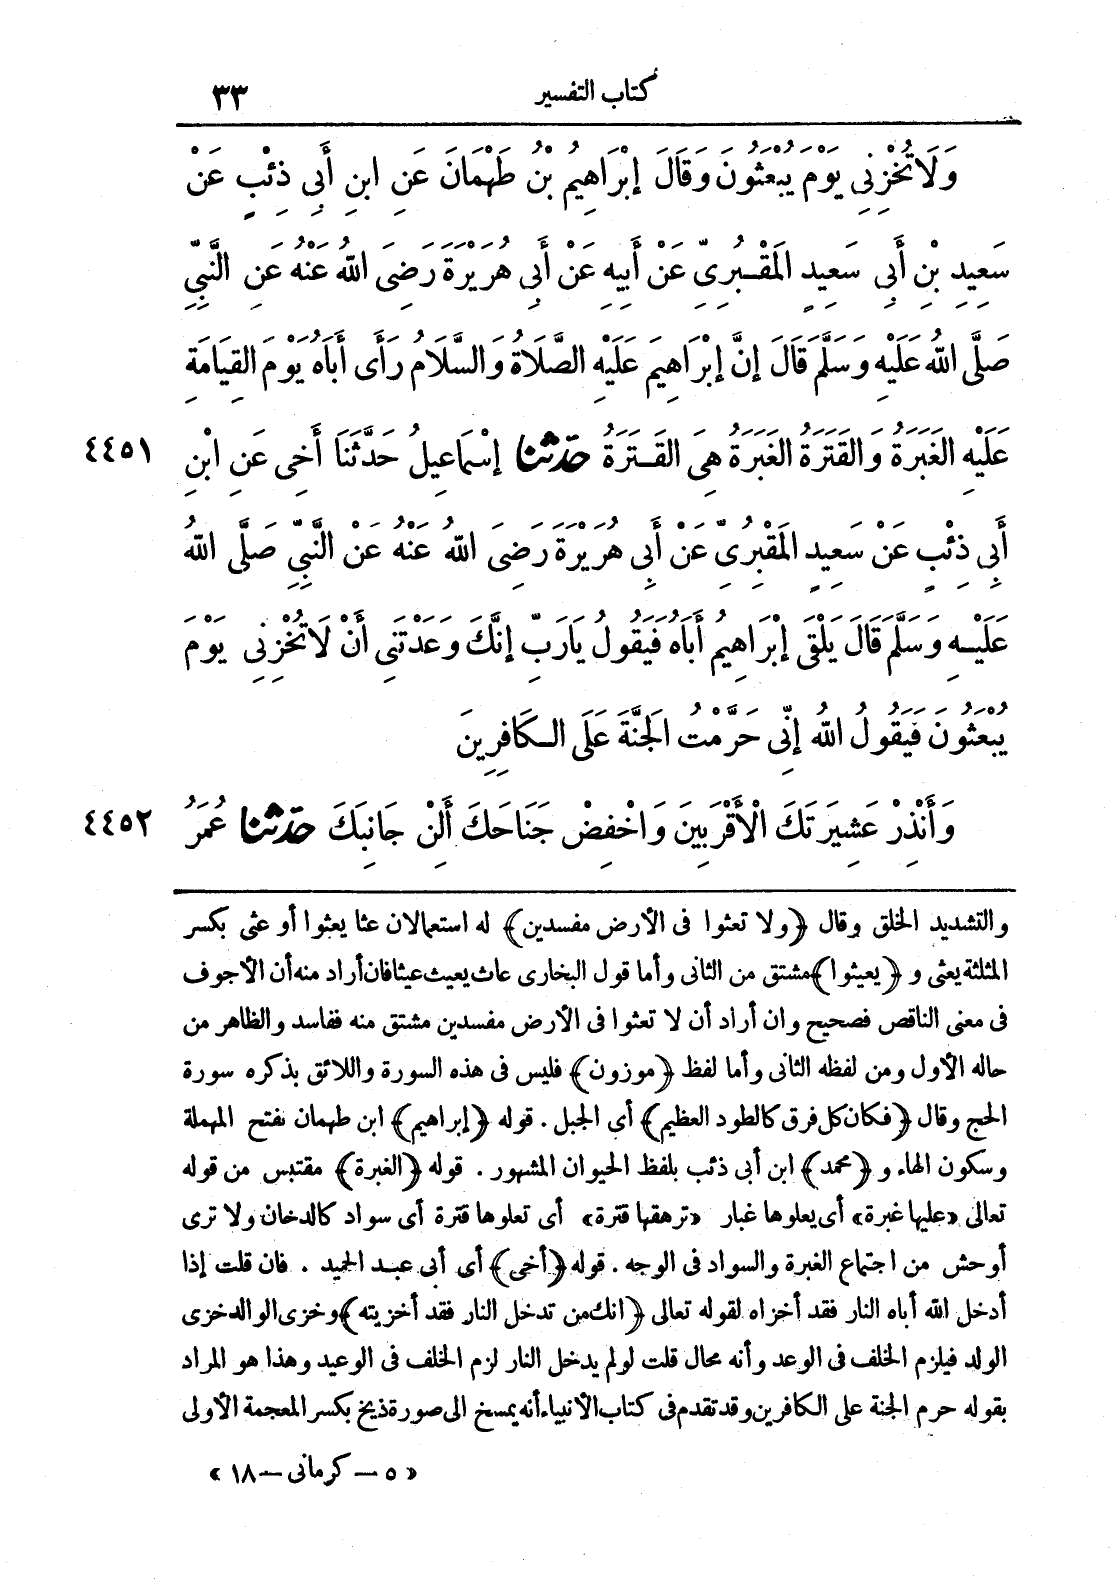 كتاب التفسير ٣٣
وَلَا تُخْزِنِى يَوْمَ يُبْعَثُونَ وَقَالَ إِبْرَاهِيمُ بْنُ طَهْمَانَ عَنِ ابنِ أَبِى ذِئْبٍ عَنْ
سَعِيدِ بْنِ أَبِى سَعِيدٍ المَقْبُرِىِّ عَنْ أَبِيهِ عَنْ أَبِى هُرَيْرَةَ رَضِىَ اللهُ عَنْهُ عَنِ النَّبِيِّ
صَلَّى اللهُ عَلَيْهِ وَسَلَّمَ قَالَ إِنَّ إِبْرَاهِيمَ عَلَيْهِ الصَّلَاةُ وَالسَّلَامُ رَأَى أَبَاهُ يَوْمَ القِيَامَةِ
عَلَيْهِ الغَبَرَةُ وَالقَتَرَةُ الغَبَرَةُ هِىَ القَتَرَةُ حَدَّثَنَا إِسْمَاعِيلُ حَدَّثَنَا أَخِى عَنِ ابْنِ ٤٤٥١
أَبِى ذِئْبٍ عَنْ سَعِيدٍ المَقْبُرِىِّ عَنْ أَبِى هُرَيْرَةَ رَضِىَ اللهُ عَنْهُ عَنْ النَّبِيِّ صَلَّى اللهُ
عَلَيْهِ وَسَلَّمَ قَالَ يَلْقَى إِبْرَاهِيمُ أَبَاهُ فَيَقُولُ يَارَبِّ إِنَّكَ وَعَدْتَنِى أَنْ لَا تُخْزِنِى يَوْمَ
يُبْعَثُونَ فَيَقُولُ اللهُ إِنِّى حَرَّمْتُ الجَنَّةَ عَلَى الكَافِرِينَ
وَأَنْذِرْ عَشِيرَتَكَ الْأَقْرَبِينَ وَاخْفِضْ جَنَاحَكَ أَلِنْ جَانِبَكَ حَدَّثَنَا عُمَرُ ٤٤٥٢
والتشديد الخلق وقال ﴿ولا تعثوا فى الأرض مفسدين﴾ له استعمالان عثا يعثوا أو عثى بكسر
المثلثة يعثى و ﴿يعيثوا﴾ مشتق من الثانى وأما قول البخارى عاث يعيث عيثا فان أراد منه أن الأجوف
فى معنى الناقص فصحيح وان أراد أن لا تعثوا فى الأرض مفسدين مشتق منه ففاسد والظاهر من
حاله الأول ومن لفظه الثانى وأما لفظ ﴿موزون﴾ فليس فى هذه السورة واللائق بذكره سورة
الحج وقال ﴿فكان كل فرق كالطود العظيم﴾ أى الجبل . قوله ﴿إبراهيم﴾ ابن طهمان بفتح المهملة
وسكون الهاء و ﴿محمد﴾ ابن أبى ذئب بلفظ الحيوان المشهور . قوله ﴿الغبرة﴾ مقتبس من قوله
تعالى «عليها غبرة» أى يعلوها غبار «ترهقها قترة» أى تعلوها قترة أى سواد كالدخان ولا ترى
أوحش من اجتماع الغبرة والسواد فى الوجه . قوله ﴿أخى﴾ أى أبى عبد الحميد . فان قلت إذا
أدخل الله أباه النار فقد أخزاه لقوله تعالى ﴿انك من تدخل النار فقد أخزيته﴾ وخزى الوالد خزى
الولد فيلزم الخلف فى الوعد وأنه محال قلت لو لم يدخل النار لزم الخلف فى الوعيد وهذا هو المراد
بقوله حرم الجنة على الكافرين وقد تقدم فى كتاب الأنبياء أنه يمسخ الى صورة ذيخ بكسر المعجمة الأولى
« ٥ – كرمانى – ١٨ »